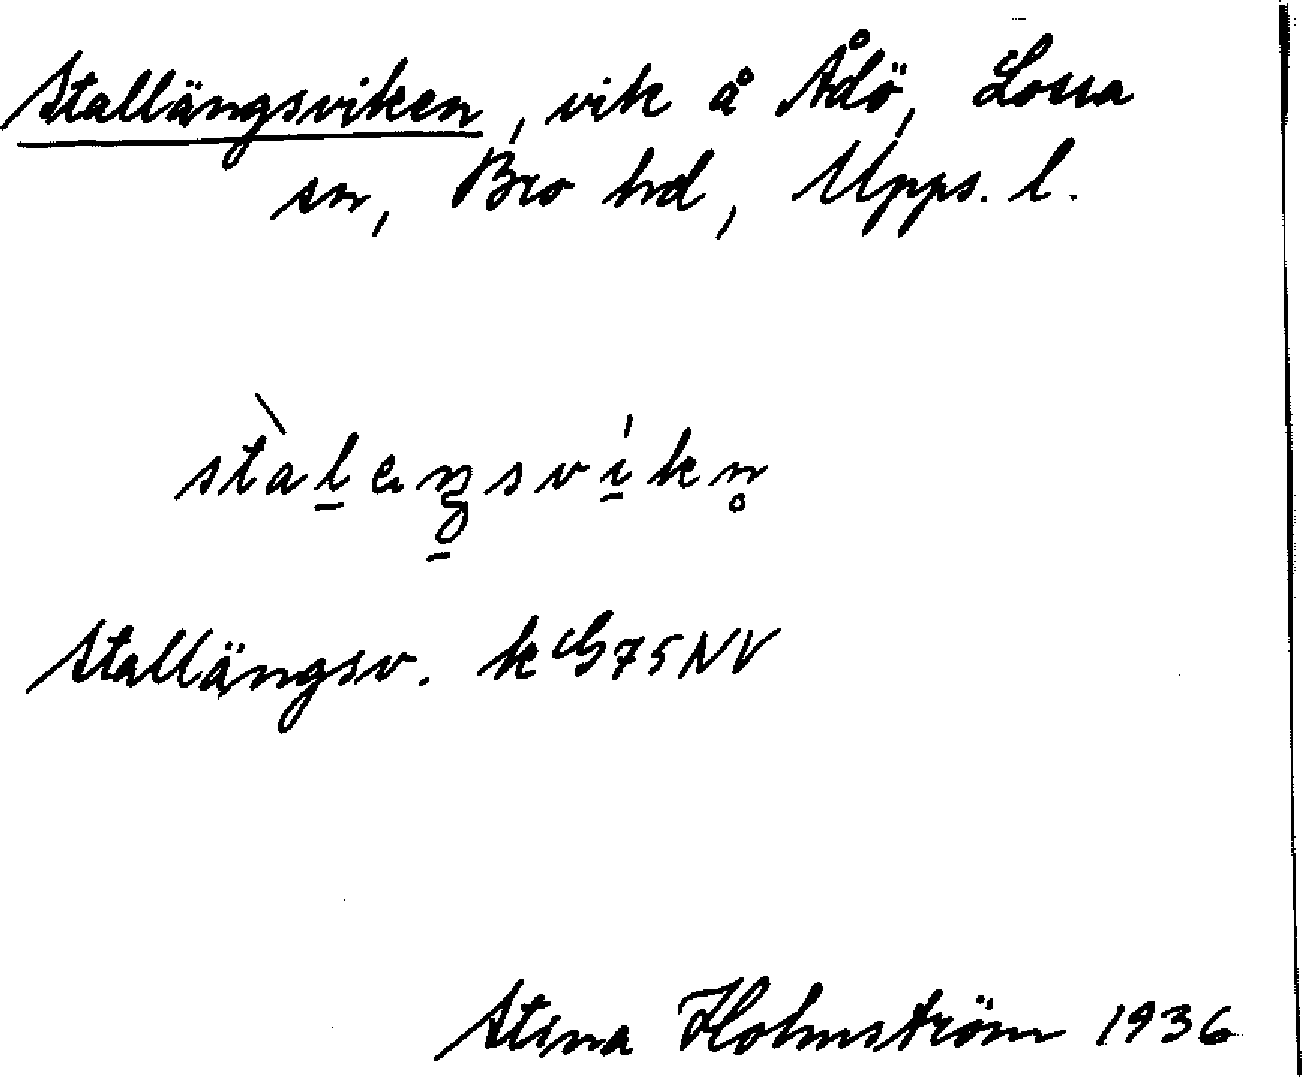 Stallängsviken, vik å Ådö, Lossa
sn, Bro hd, Upps. l.
Stallängsv. k G 75 NV
Stina Holmström 1936